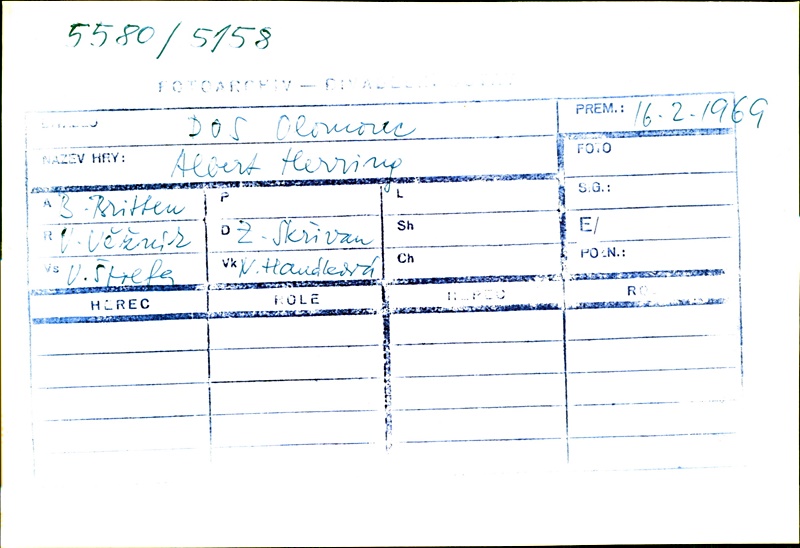 5580/5158
FOTOARCHIV —
DOS Olomouc
PREM.: 16.2.1969
NÁZEV HRY: Albert Herring
FOTO
A B. Britten
P
L
S.G.:
R V. Věžník
D Z. Skřivan
Sh
E/
Vs V. Štrefa
Vk V. Handková
Ch
POZN.:
HEREC ROLE HEREC RO